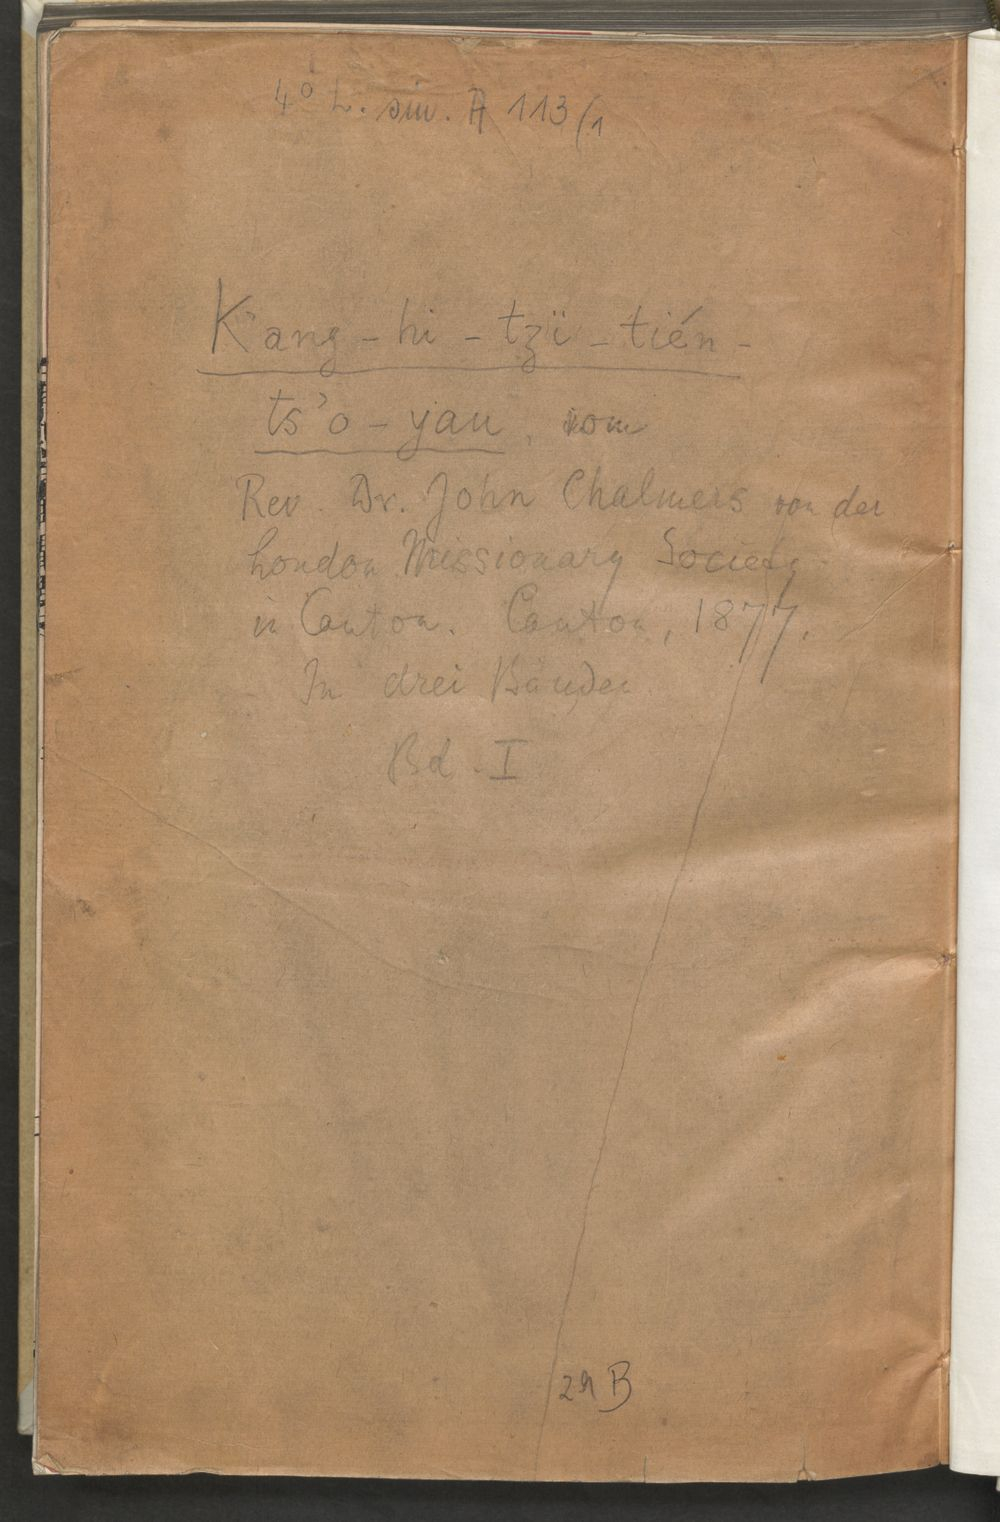 4° L. sin. A 113/1
K'ang-hi-tzï-tién-
ts'o-yau, vom
Rev. Dr. John Chalmers von der
London Missionary Society
in Canton. Canton, 1877.
In drei Bänden
Bd. I
B